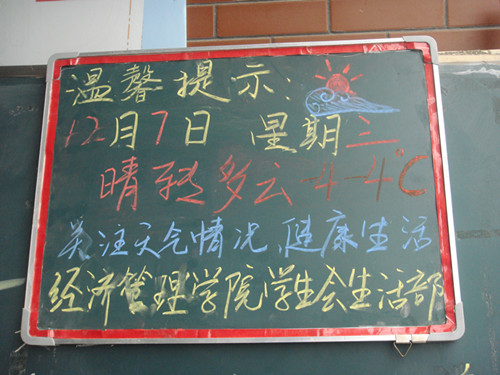 温馨提示:
12月7日 星期三
晴转多云-4-4℃
关注天气情况,健康生活
经济管理学院学生会生活部